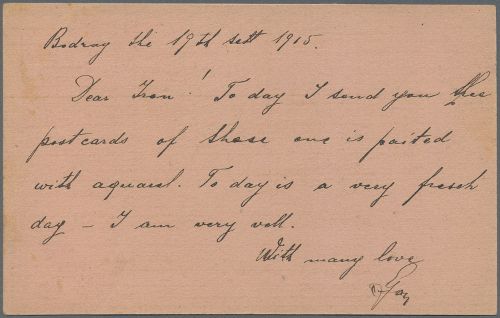 Bodrog the 19th sett 1915.
Dear Iren! To day I send you thee
postcards of these one is paited
with aquarel. To day is a very fresch
day - I am very vell.
With many love